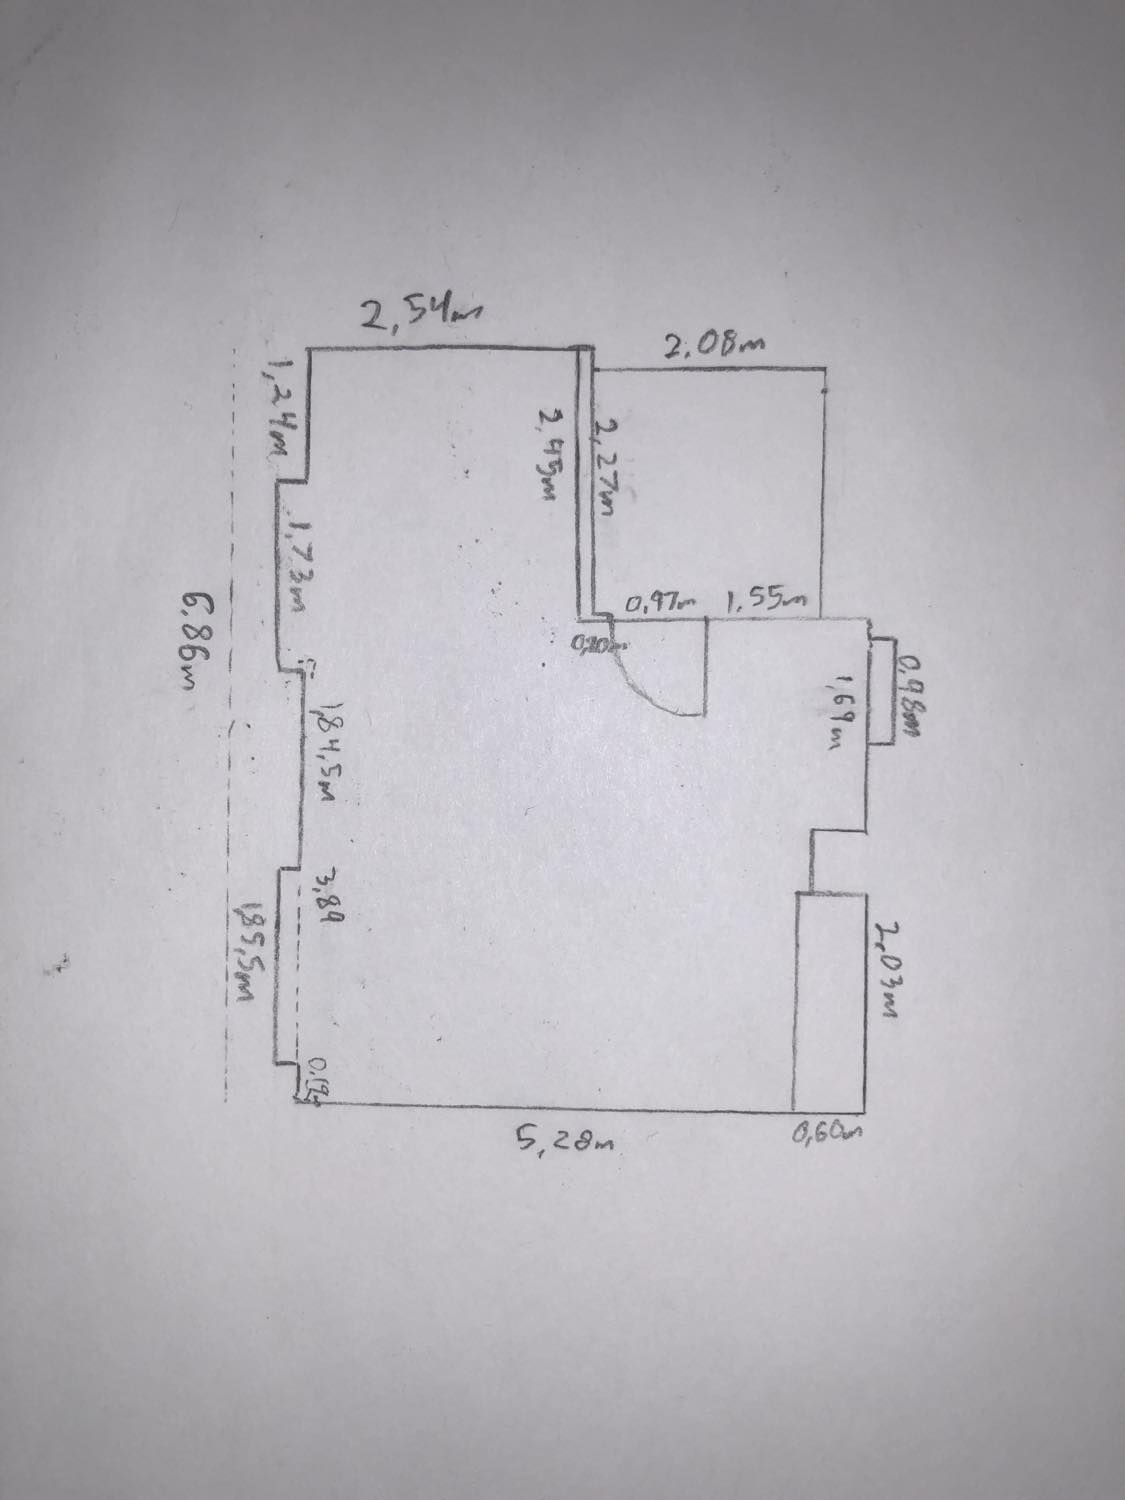 2,54m
2.08m
1,24m
2,45m
2,27m
1,73m
0,97m
1,55m
0,20m
6.86m
1,69m
0,98m
1,84,5m
3,89
1,85,5m
2,03m
0,19m
5,28m
0,60m